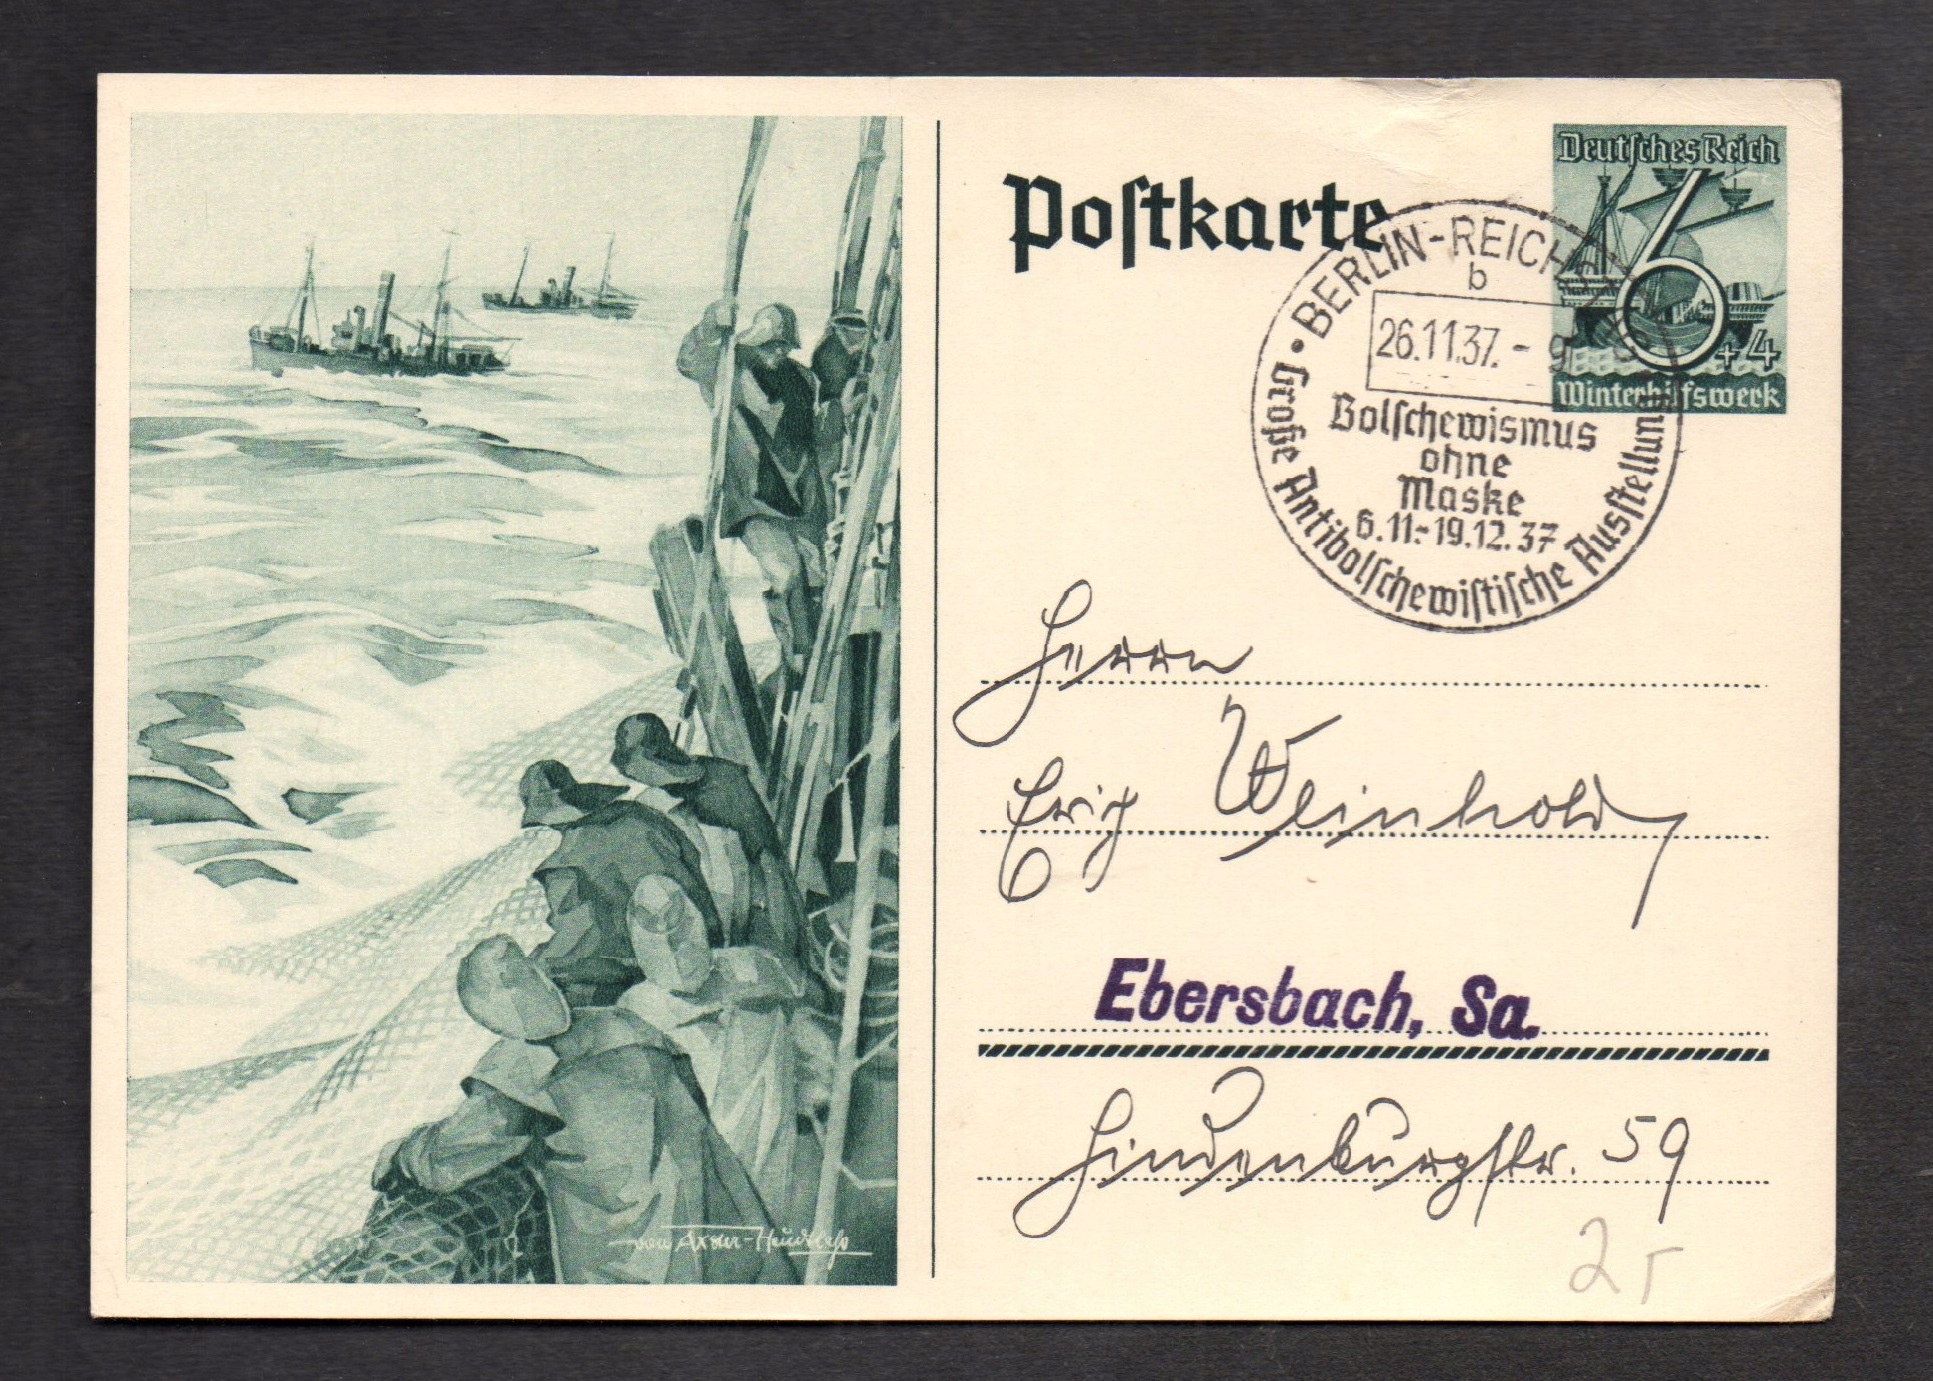 Postkarte
Deutsches Reich
6
+ 4
Winterhilfswerk
BERLIN-REICHS
b
26.11.37. - 9
Bolschewismus
ohne
Maske
6.11.-19.12.37
Große Antibolschewistische Ausstellung
Herrn
Weinhold
Ebersbach, Sa.
Hindenburgstr. 59
von Axster-Heudtlaß
2